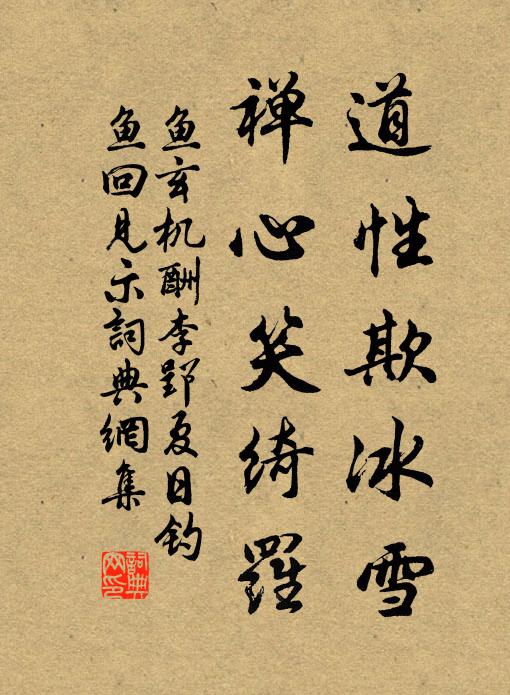 道性欺冰雪
禅心笑绮罗
鱼玄机酬李郢夏日钓
鱼回见示詞典網集
詞典
网印